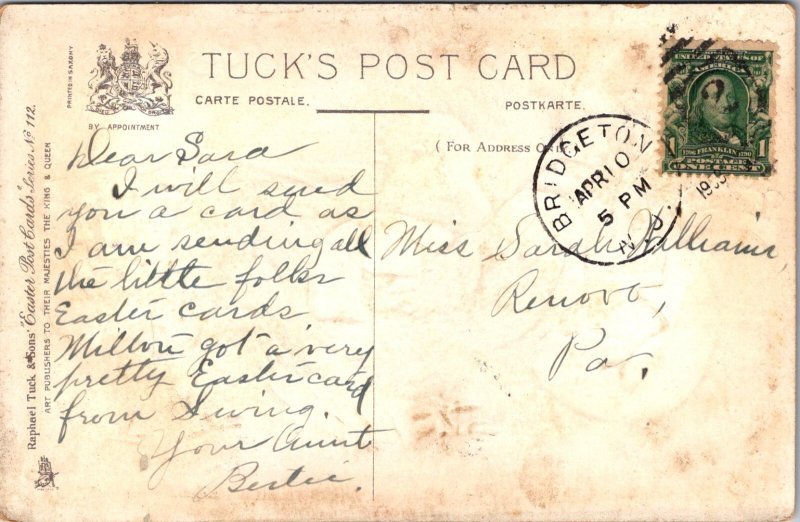 TUCK'S POST CARD
CARTE POSTALE.
POSTKARTE.
(FOR ADDRESS ONLY
PRINTED IN SAXONY
BY APPOINTMENT
Raphael Tuck & Sons' "Easter Post Cards" Series No 112.
ART PUBLISHERS TO THEIR MAJESTIES THE KING & QUEEN
Dear Sara
I will send
you a card as
I am sending all
the little folks
Easter cards
Milton got a very
pretty Easter card
from Irving.
Your Aunt
Bertie.
Miss Sarah Williams,
Renovo,
Pa.
BRIDGETON
APR 10
5 PM
N.J.
UNITED STATES OF
AMERICA
1 FRANKLIN 1
POSTAGE
ONE CENT